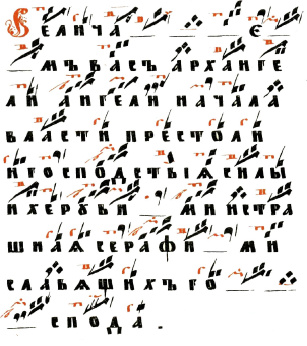 ВЕЛИЧА Е
МЪ ВАСЪ АРХАНГЕ
ЛИ АНГЕЛИ НАЧАЛА
ВЛАСТИ ПРЕСТОЛИ
И ГОСПОДСТЫѦ СИЛЫ
И ХЕРУВИ МИ И СТРА
ШНИѦ СЕРАФИ МИ
СЛАВѦЩИХЪ ГО
СПОДА .